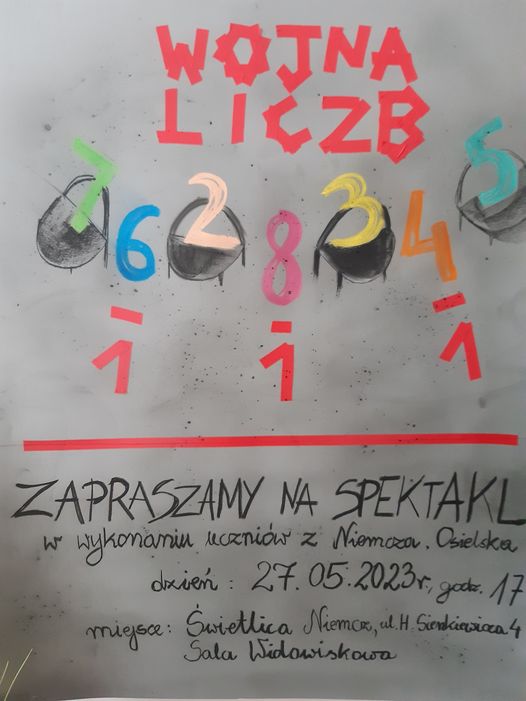 WOJNA
LICZB
7 6 2 8 3 4 5
-1 -1 -1
ZAPRASZAMY NA SPEKTAKL
w wykonaniu uczniów z Niemcza, Osielska
dzień: 27.05.2023r, godz. 17
miejsce: Świetlica Niemcz, ul. H. Sienkiewicza 4
Sala Widowiskowa